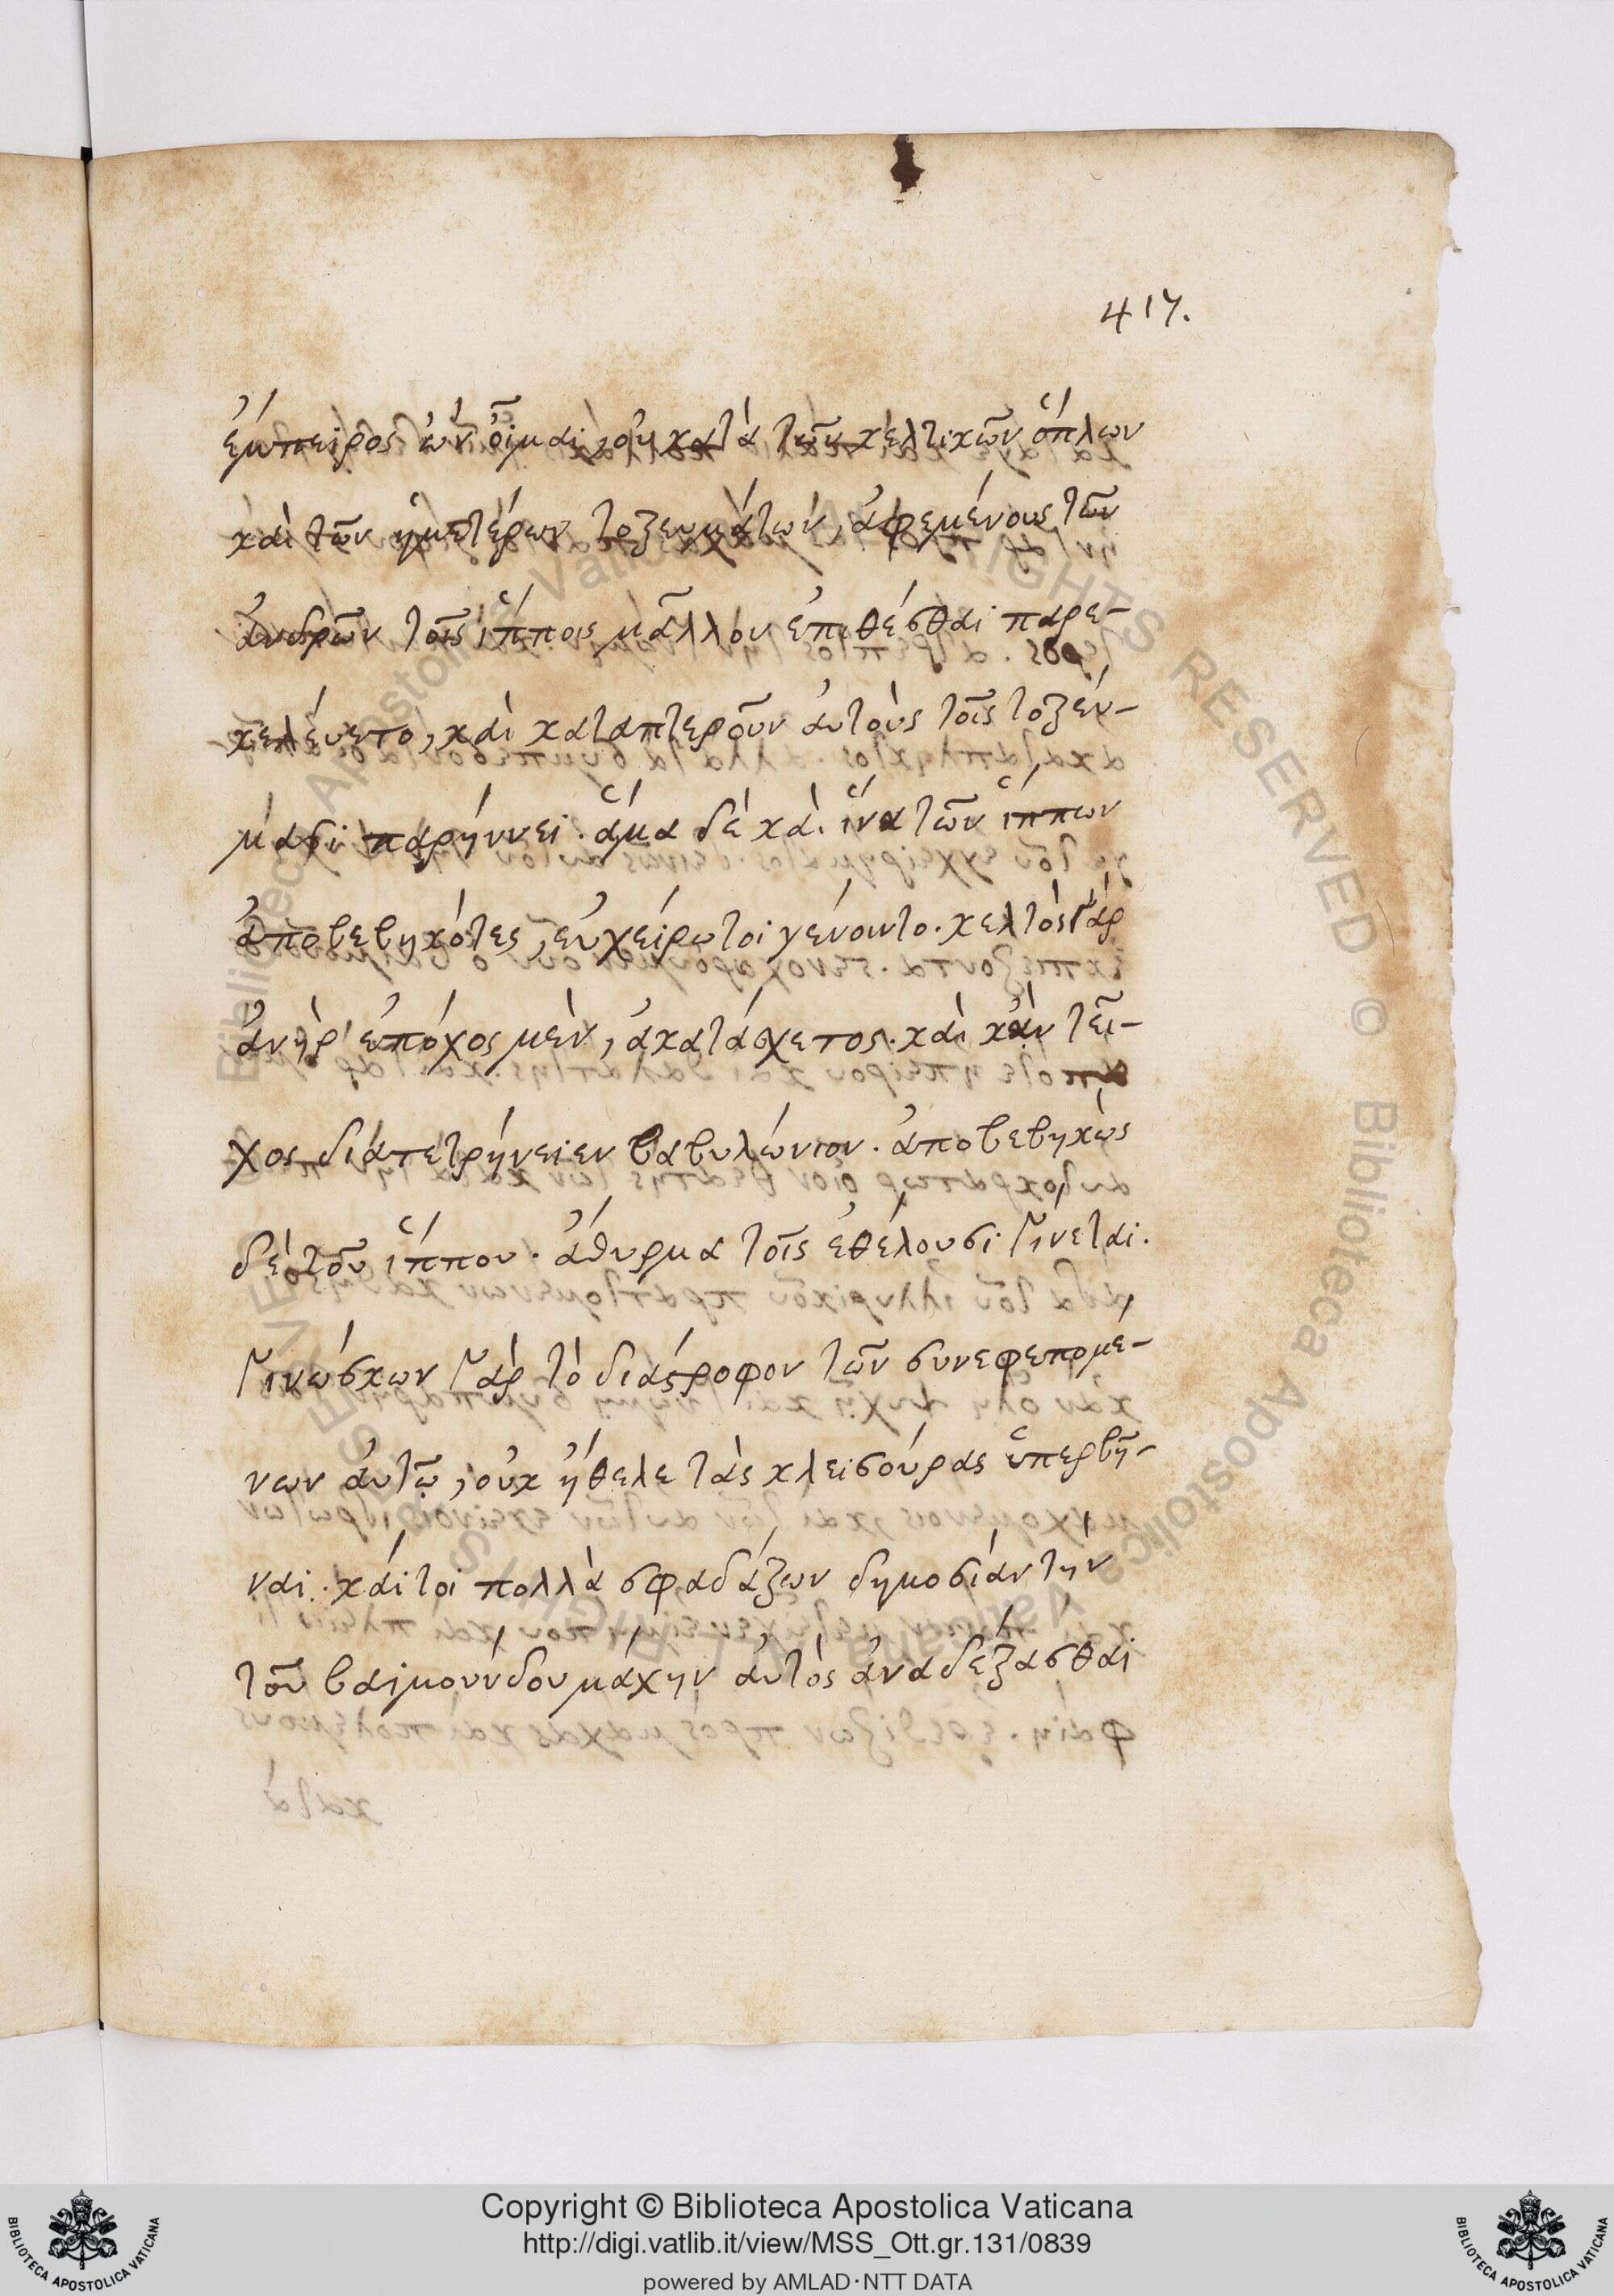 417.
ἐμπειρος ὢν οἶμαι, οὐ κατὰ τῶν κελτικῶν ὅπλων
καὶ τῶν ἡμετέρων τοξευμάτων, ἀφεμένους τῶν
ἀνδρῶν τοῖς ἵπποις μᾶλλον ἐπιθέσθαι παρε-
κελέυετο, καὶ καταπτεροῦν ἀυτοὺς τοῖς τοξέυ-
μασι παρήνει. ἅμα δὲ καὶ ἵνα τῶν ἵππων
ἀποβεβηκότες, ἐυχείρωτοι γένοιντο. κελτὸς γὰρ
ἀνὴρ ἐπόχος μὲν, ἀκατάσχετος. καὶ κἂν τεῖ-
χος διατετρήνειεν βαβυλώνιον. ἀποβεβηκὼς
δὲ τοῦ ἵππου. ἄθυρμα τοῖς ἐθέλουσι γίνεται.
γινώσκων γὰρ τὸ διάστροφον τῶν συνεφεπομέ-
νων ἀυτῷ, οὐκ ἤθελε τὰς κλεισούρας ὑπερβῆ-
ναι. κάιτοι πολλὰ σφαδάζων δημοσίαν τὴν
τοῦ βαϊμούνδου μάχην ἀυτὸς ἀναδέξασθαι
Copyright © Biblioteca Apostolica Vaticana
http://digi.vatlib.it/view/MSS_Ott.gr.131/0839
powered by AMLAD·NTT DATA
BIBLIOTECA APOSTOLICA VATICANA
BIBLIOTECA APOSTOLICA VATICANA